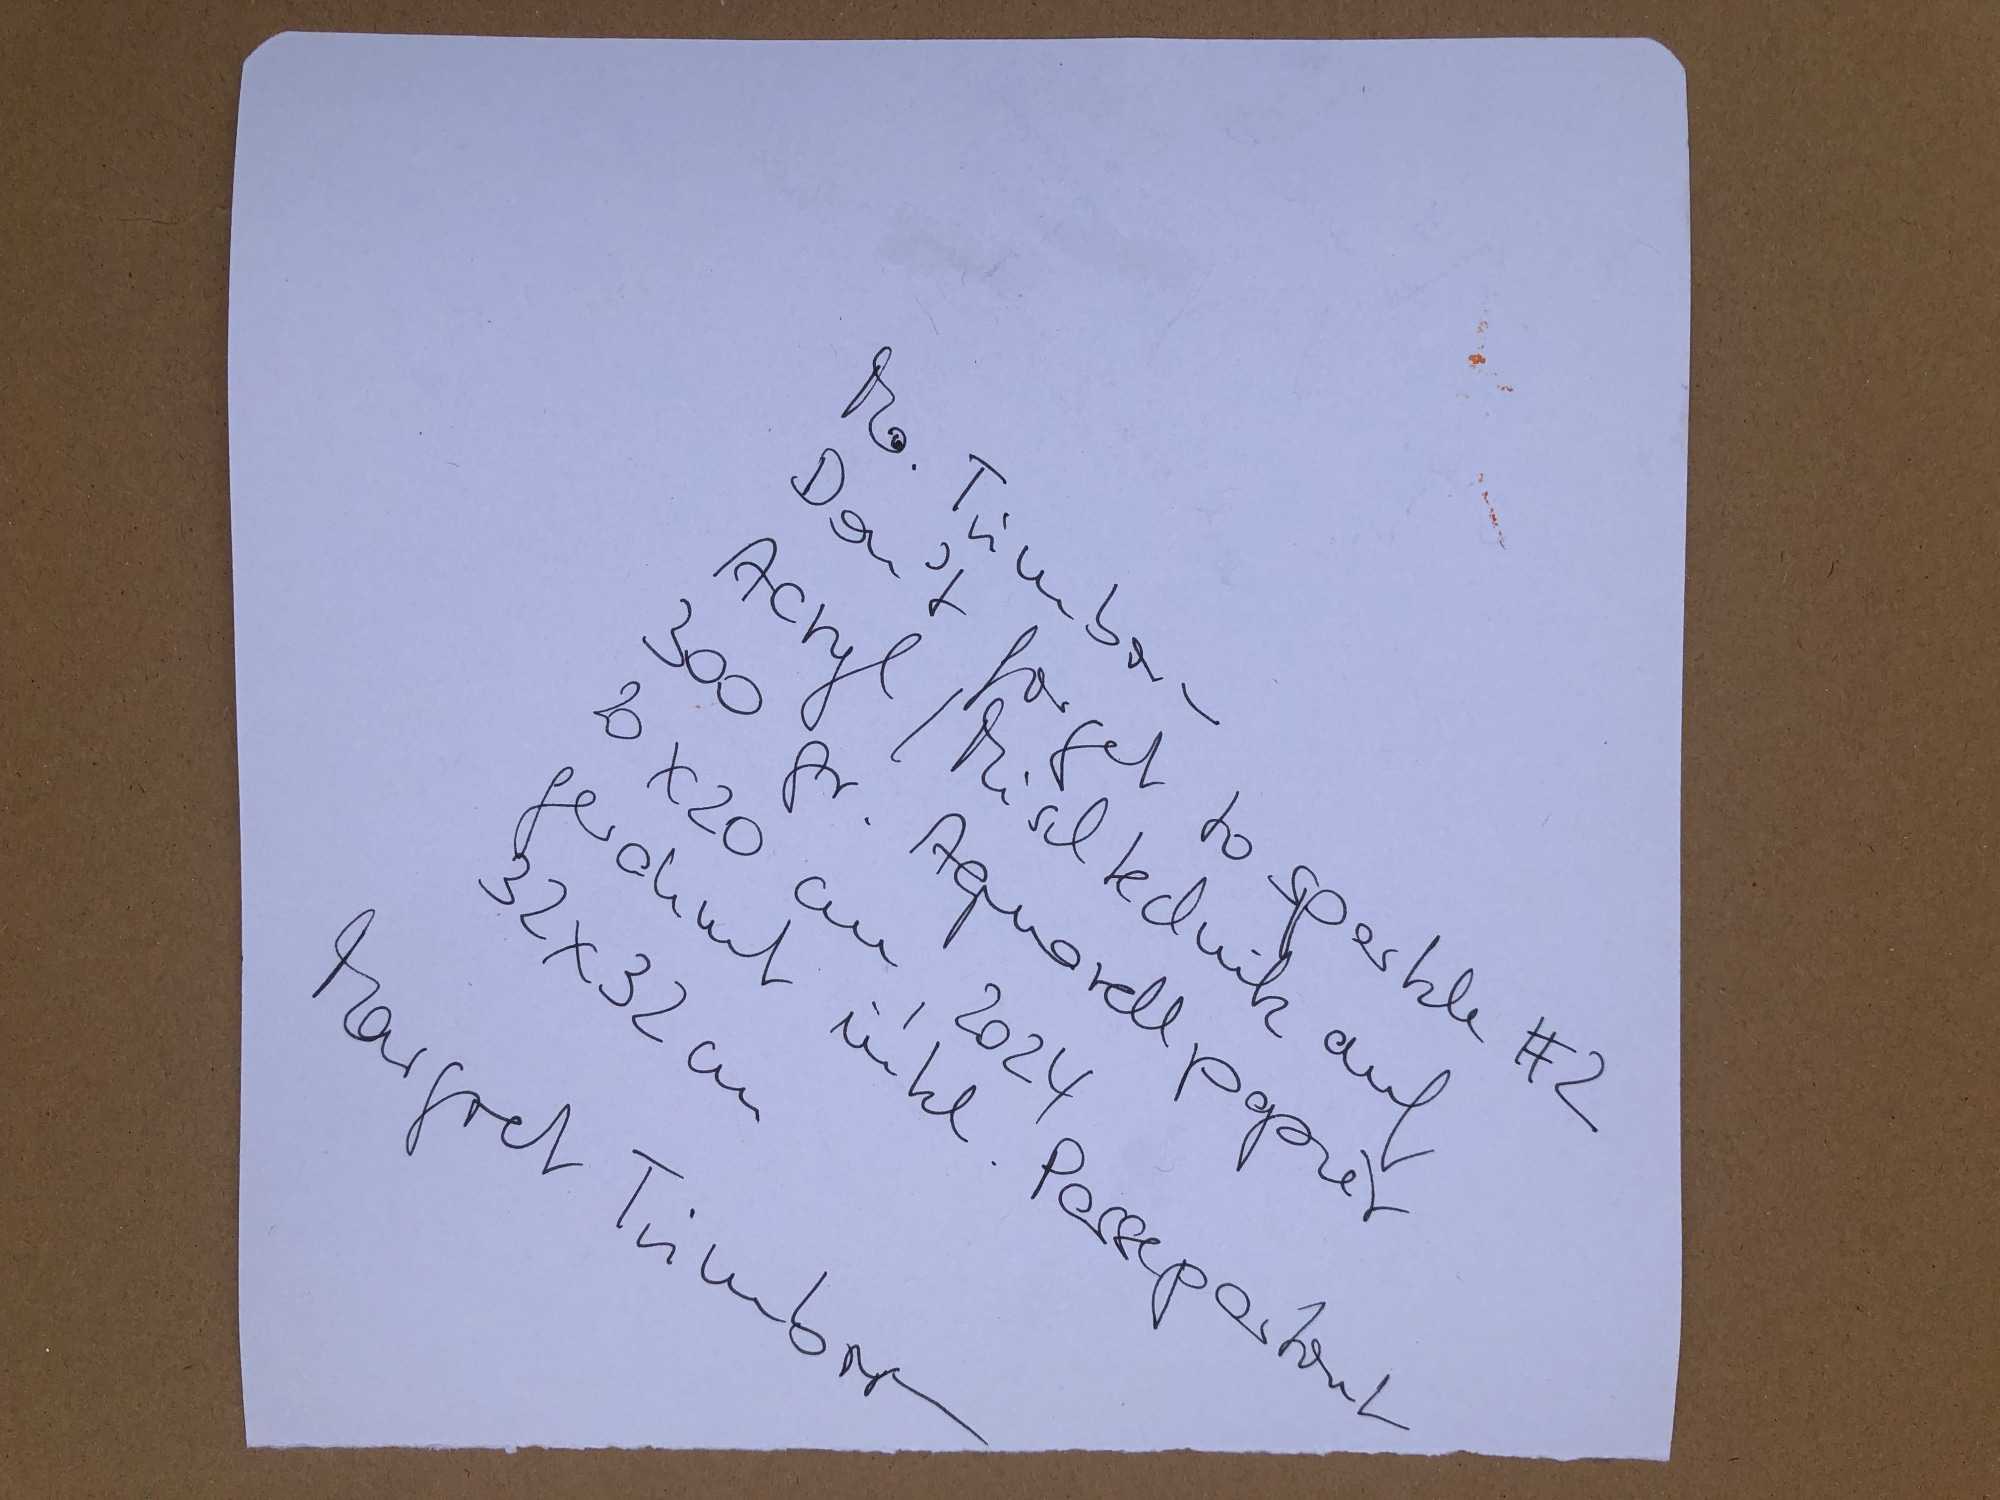 Ma. Timbor
Don't forget to sparkle #2
Acryl / Mischtechnik auf
300 gr. Aquarellpapier
20 x 20 cm, 2024
gerahmt inkl. Passepartout
32x32 cm
Margret Timbor